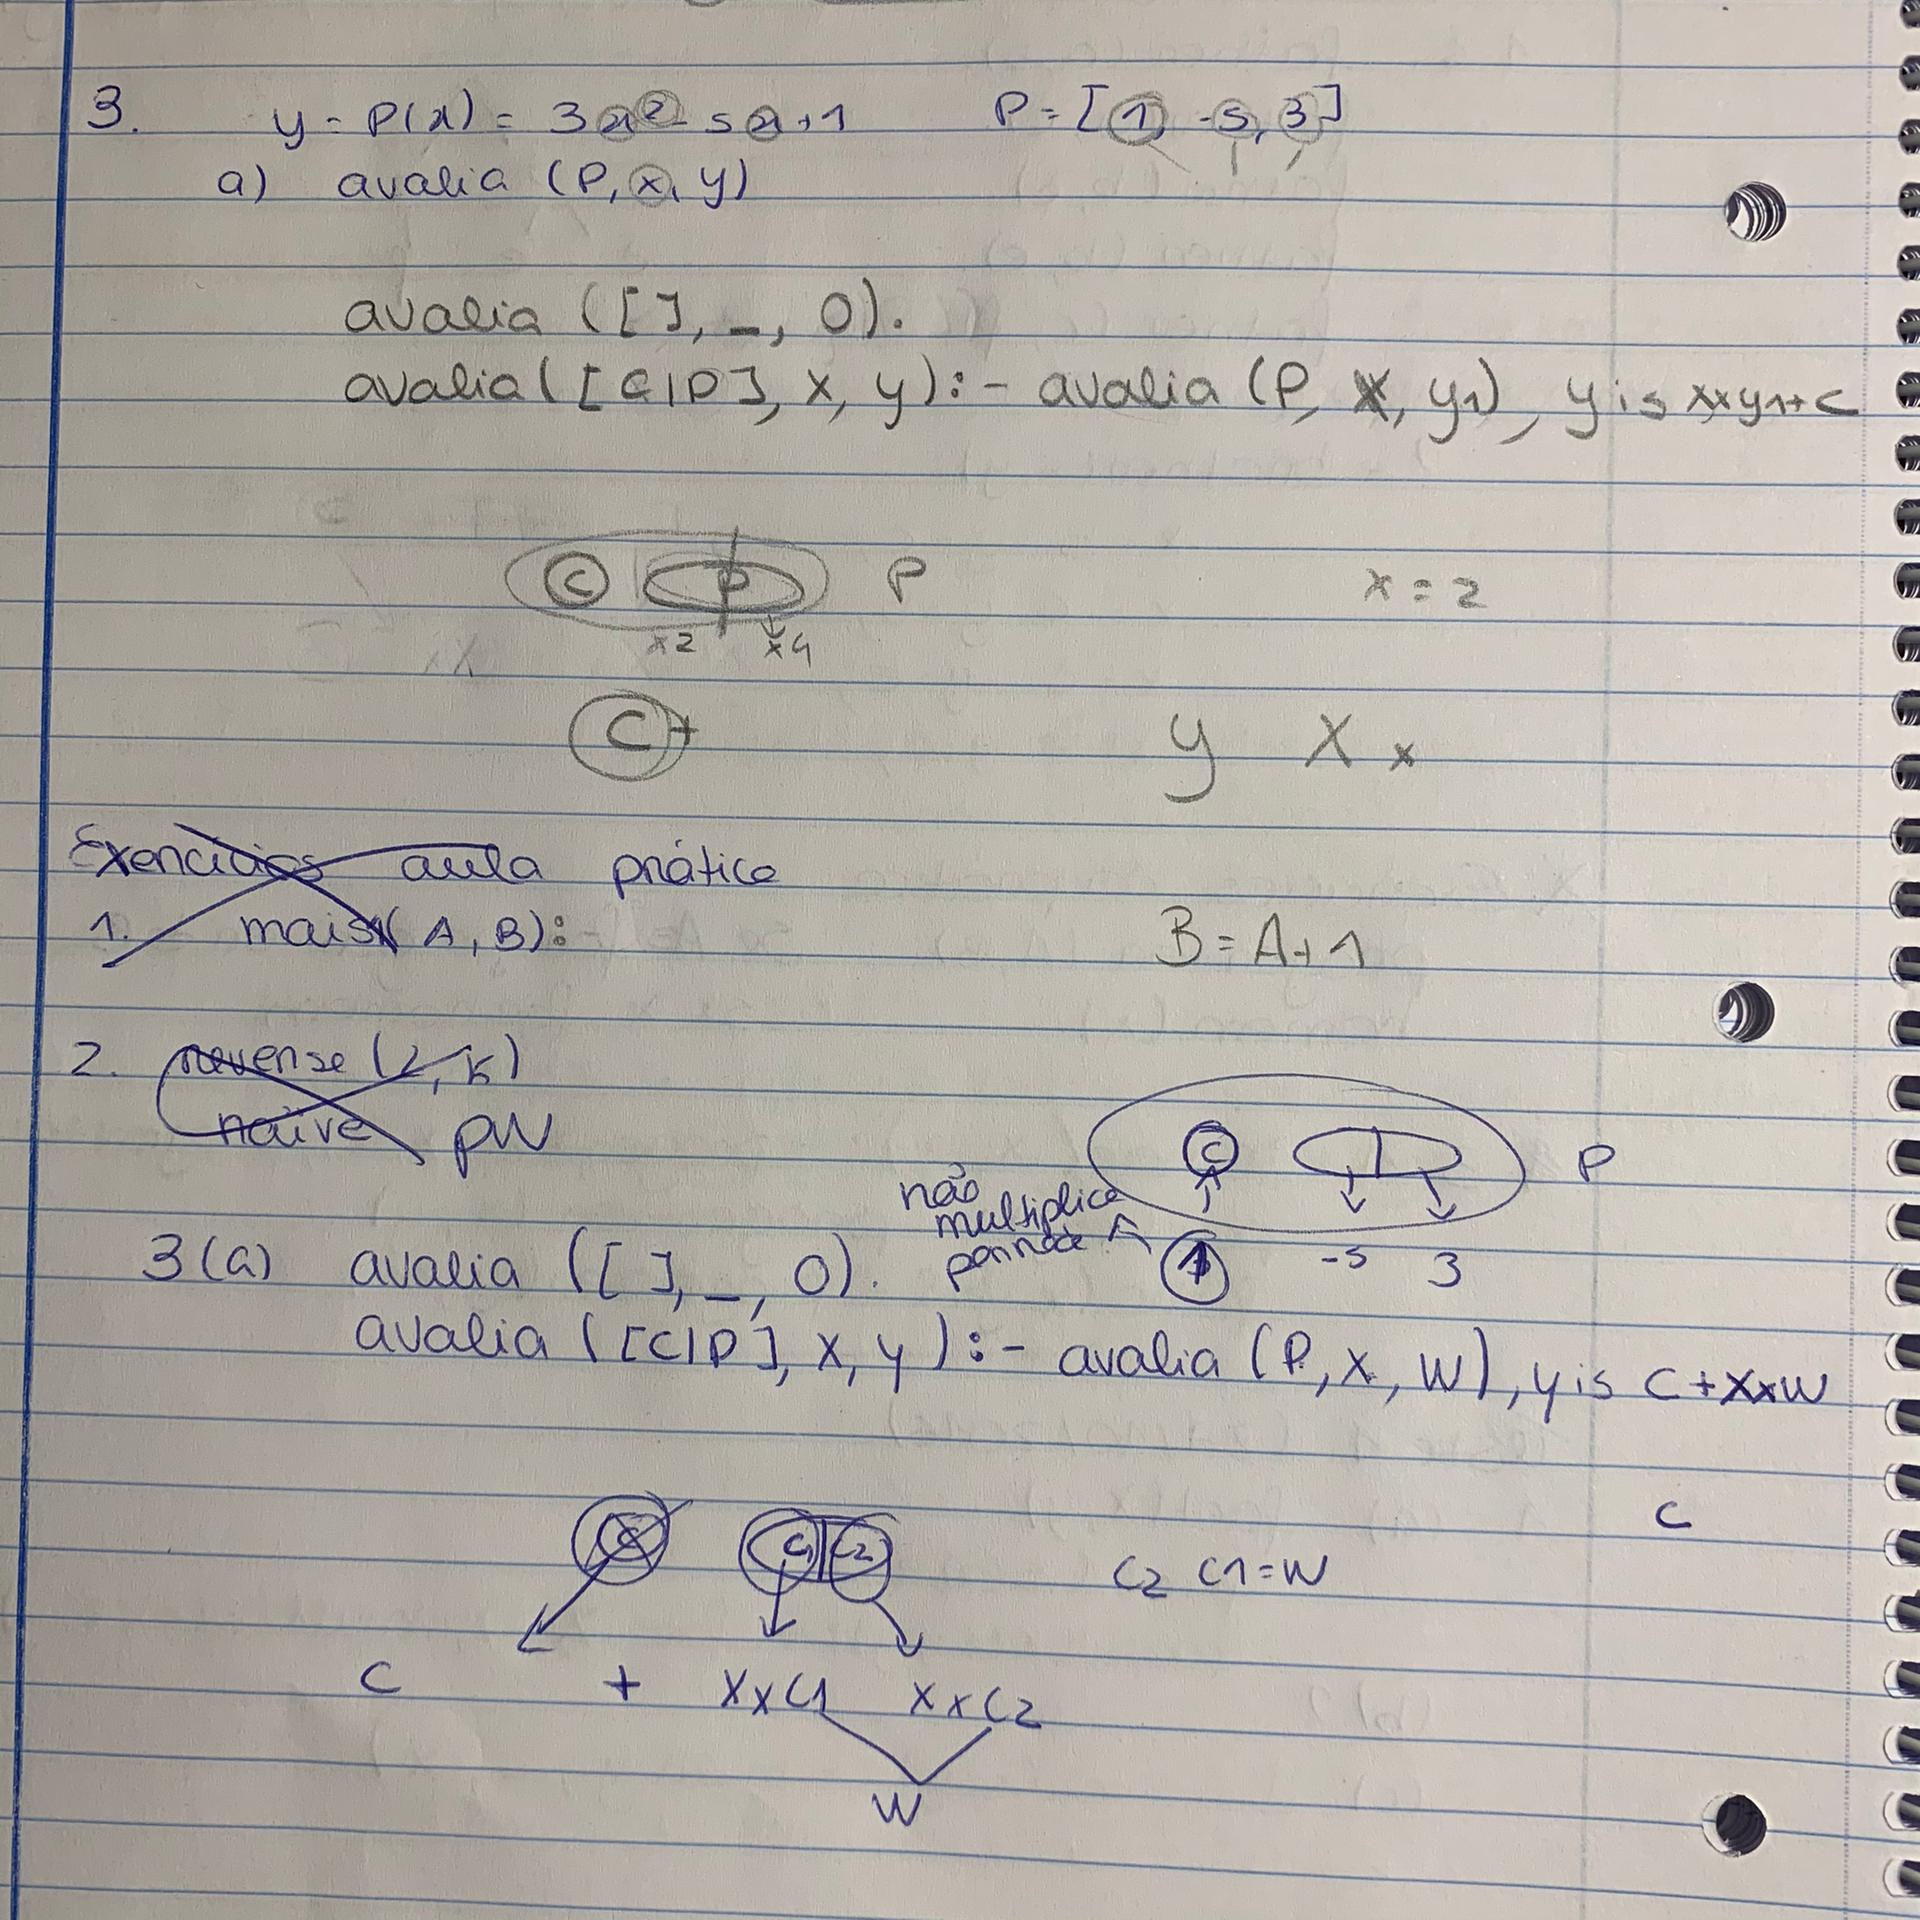 3. y = P(x) = 3x² - 5x + 1 P = [1, -5, 3]
a) avalia (P, x, y)
avalia ([ ], _, 0).
avalia ([C|P], X, y) :- avalia (P, X, y1), y is x*y1+C
C P P x = 2
x2 x4
C + y X x
Exercícios aula prática
1. mais1 (A, B): B = A+1
2. reverse (L, K)
naïve pW
C P
não
multiplica
por nada 1 -5 3
3 (a) avalia ([ ], _, 0).
avalia ([C|P], X, y) :- avalia (P, X, W), y is C + X x W
C C1 C2 C
C2 C1 = W
C + X x C1 X x C2
W